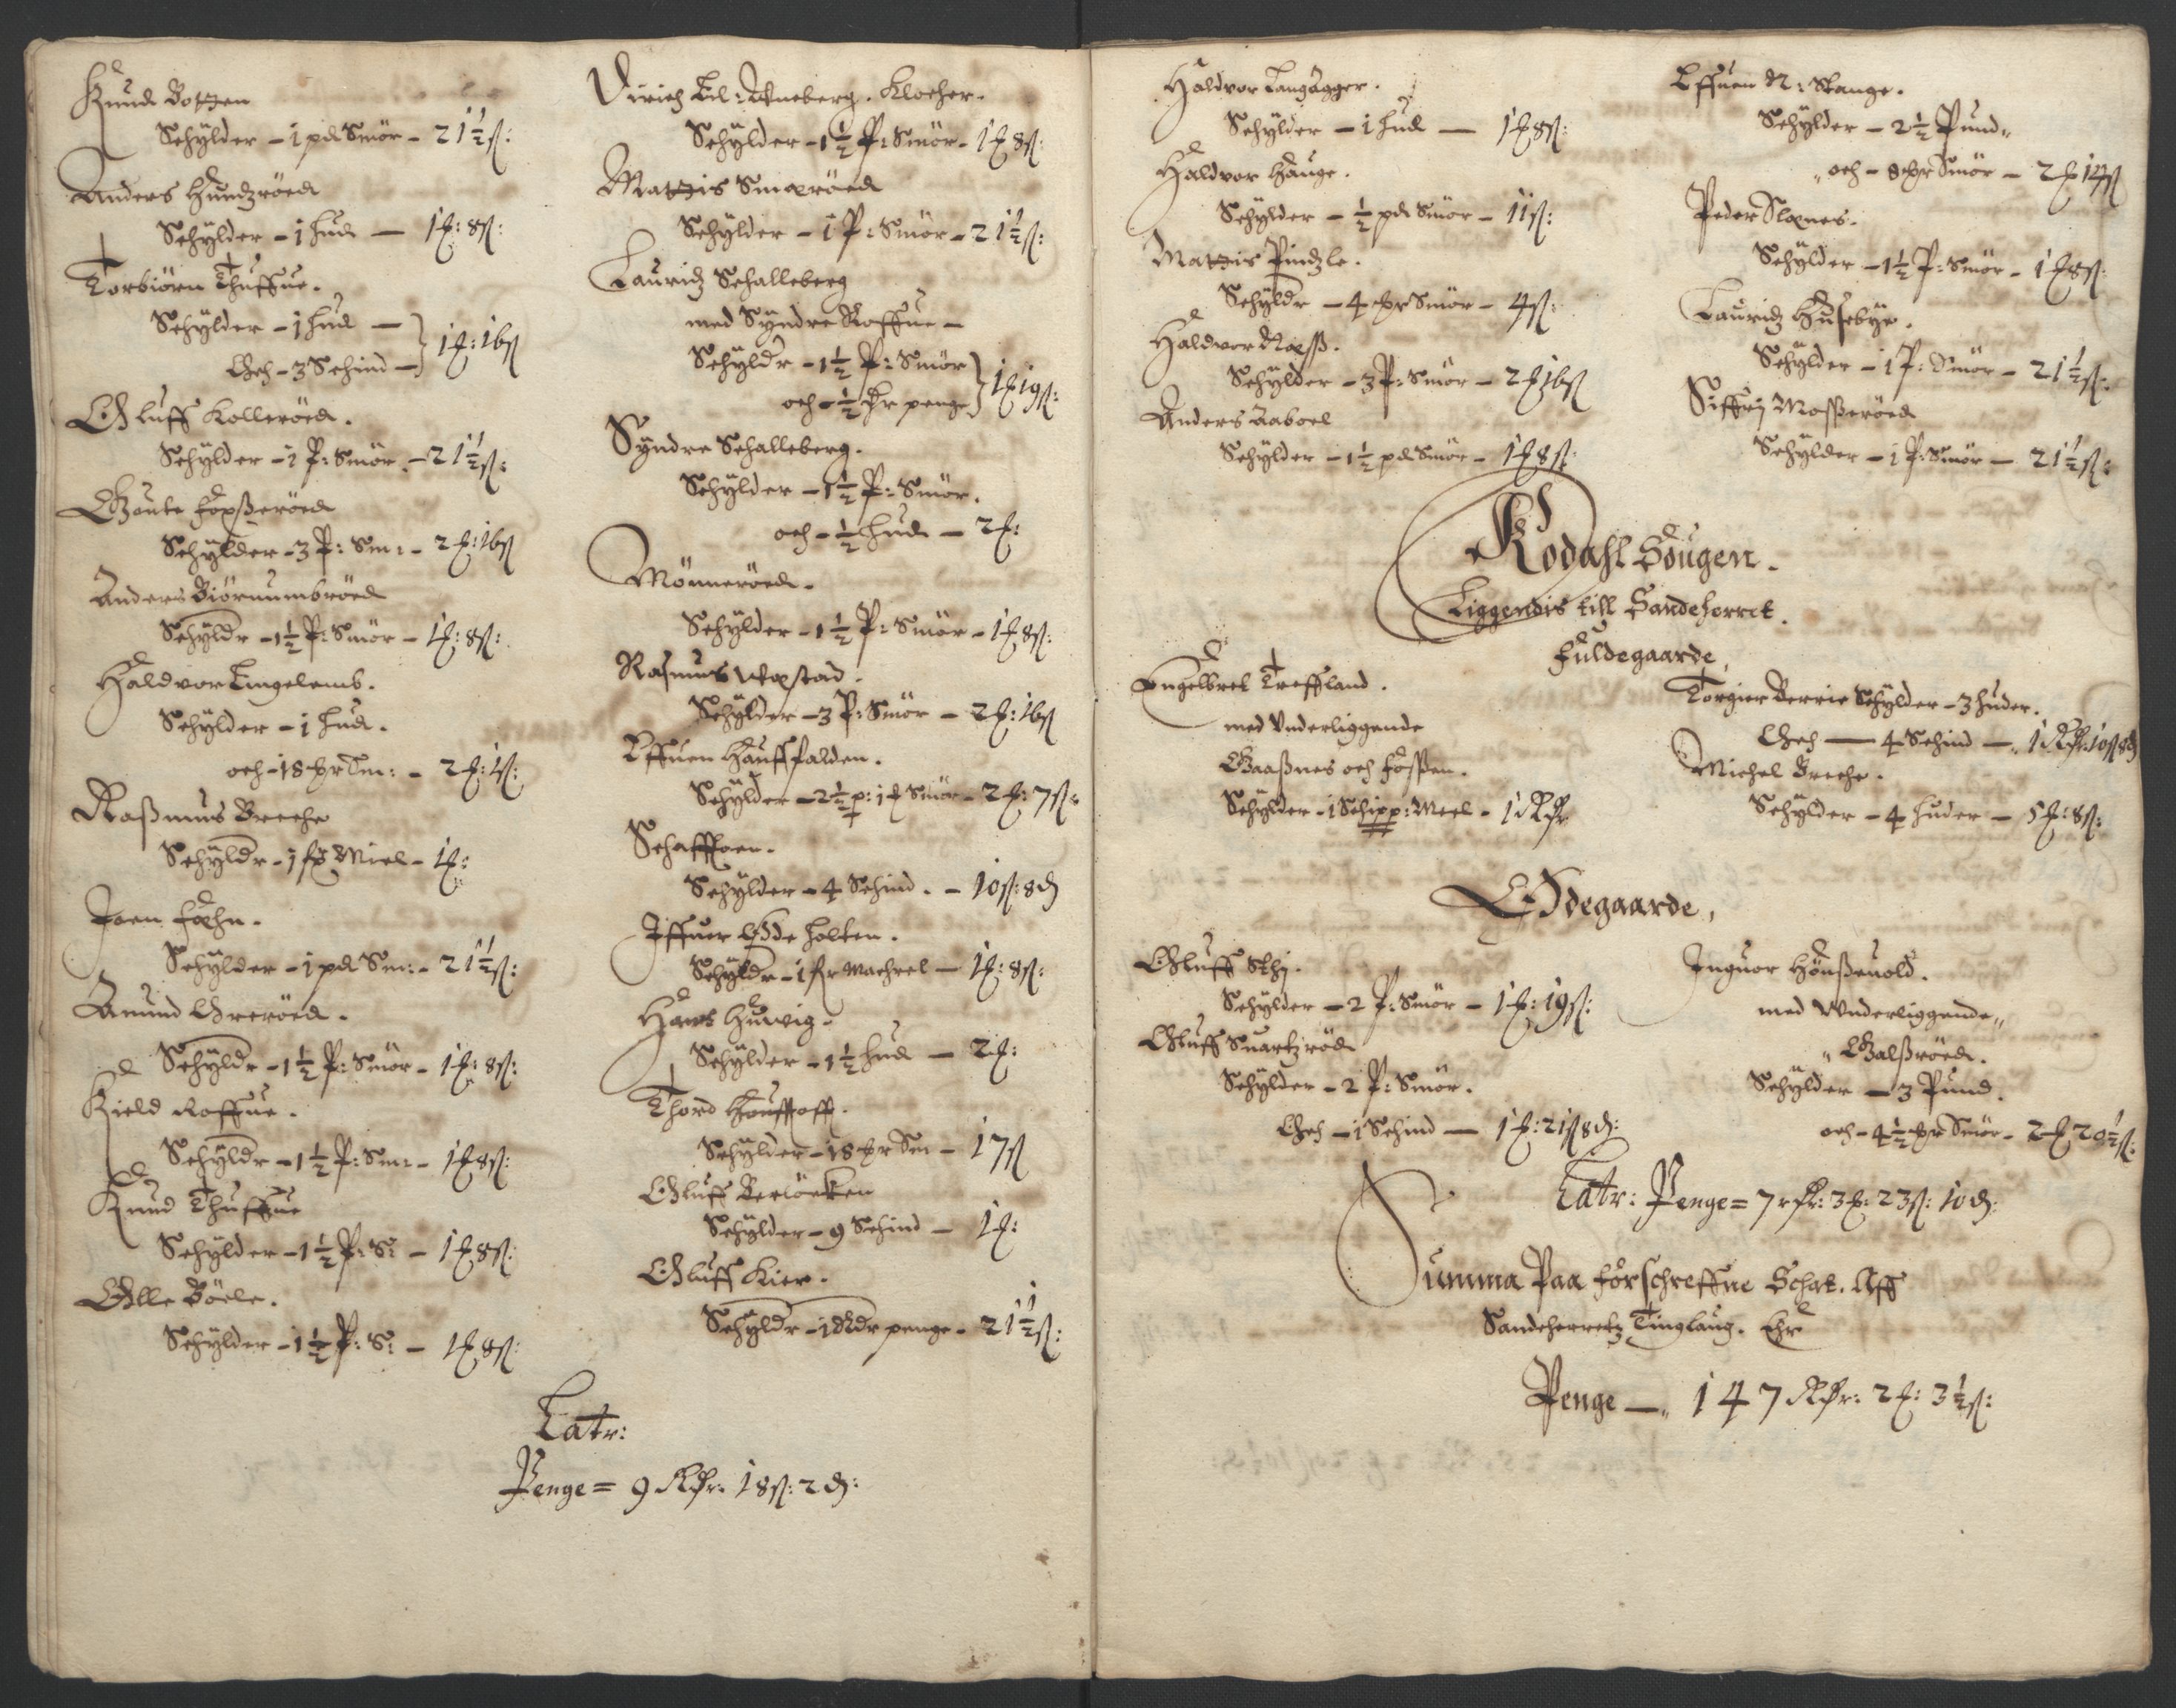 Knud Botzen
Schylder - 1 pd Smör - 21½ ß:
Anders Hundzröed
Schylder - 1 hud - 1 £: 8 ß:
Torbiörn Thuffue.
Schylder - 1 hud -
Och - 3 Schind - 1 £: 16 ß
Oluff Kolleröed.
Schylder - 1 P: Smör - 21½ ß:
Gaute Foxßeröed
Schylder - 3 P: Sm: - 2 £: 16 ß
Anders Biörnumbröed
Schyldr - 1½ P: Smör - 1 £: 8 ß:
Haldvor Lingelemb.
Schylder - 1 hud.
och - 18 Sm: - 2 £: 1 ß:
Raßmus Breche
Schyldr - 1 Miel - 1 £:
Joen Fæhn.
Schylder - 1 pd Sm: - 21½ ß:
Amund Greröed.
Schyldr - 1½ P: Smör - 1 £: 8 ß:
Kield Roffue.
Schyldr - 1½ P: Sm: - 1 £ 8 ß:
Knud Thuffue
Schylder - 1½ P: S: - 1 £ 8 ß:
Olle Böele.
Schylder - 1½ P: S: - 1 £ 8 ß:
Dirich Eil: Aneberg. Klocher.
Schylder - 1½ P: Smör - 1 £ 8 ß:
Matzis Smöröed
Schylder - 1 P: Smör - 21½ ß:
Lauridz Schalleberg
med Syndre Roffue -
Schyldr - 1½ P: Smör
och - ½ penge 1 £ 19 ß:
Syndre Schalleberg.
Schylder - 1½ P: Smör.
och - ½ hud - 2 £:
Mönneröed.
Schylder - 1½ P: Smör - 1 £ 8 ß:
Rasmus Wæstad.
Schylder - 3 P: Smör - 2 £: 16 ß
Effuen Hauffsalden.
Schylder - 2½ p: 1 Smör - 2 £: 7 ß
Schafftoen.
Schylder - 4 Schind. - 10 ß: 8 d
Iffuer Ode holten.
Schyldr - 1 Machrel - 1 £: 8 ß:
Hans Huvig.
Schylder - 1½ hud - 2 £:
Thord Hauffoff.
Schylder - 18 Sm - 17 ß
Oluff Berlöcken
Schylder - 9 Schind - 1 £:
Oluff Kier.
Schyldr - 1 Rdr penge - 21½ ß:
Latr:
Penge = 9 Rdr: 18 ß: 2 d:
Haldvor Langagger.
Schylder - 1 hud - 1 £ 8 ß:
Haldvor Hauge.
Schylder - ½ pd Smör - 11 ß:
Matzis Pindzle.
Schyldr - 4 Smör - 4 ß:
Haldvor Næss.
Schylder - 3 P: Smör - 2 £ 16 ß
Anders Aaboel
Schylder - 1½ pd Smör - 1 £ 8 ß:
Effuen N: Stange.
Schylder - 2½ Pund
och - 8 Smör - 2 £ 14 ß
Peder Sloenes.
Schylder - 1½ P: Smör - 1 £ 8 ß:
Lauridz Husebye.
Schylder - 1 P: Smör - 21½ ß:
Siffrij Moßeröed
Schylder - 1 P: Smör - 21½ ß:
Kodahl Sougen.
Liggendis till Sandeherret.
Fuldegaarde,
Engelbret Treffland.
med Vnderliggende
Gaaßnes och Foßßen.
Schylder - 1 Schipp: Meel - 1 Rdr
Torgier Berrie Schylder - 3 huder.
Och - 4 Schind - 1 Rdr: 10 ß 8 d
Michel Breche.
Schylder - 4 huder - 5 £: 8 ß:
Ødegaarde,
Oluff Sthj.
Schylder - 2 P: Smör - 1 £: 19 ß:
Oluff Suartzröd
Schylder - 2 P: Smör.
Och - 1 Schind - 1 £: 21 ß 8 d:
Inguor Hönßeuold.
med Vnderliggende
Galßröed.
Schylder - 3 Pund.
och - 4½ Smör - 2 £ 20½ ß:
Latr: Penge = 7 rdr: 3 £: 23 ß: 10 d:
Summa Paa Forschreffne Schat. Aff
Sandeherretz Tinglaug. Ehr
Penge - 147 Rdr: 2 £: 3½ ß: